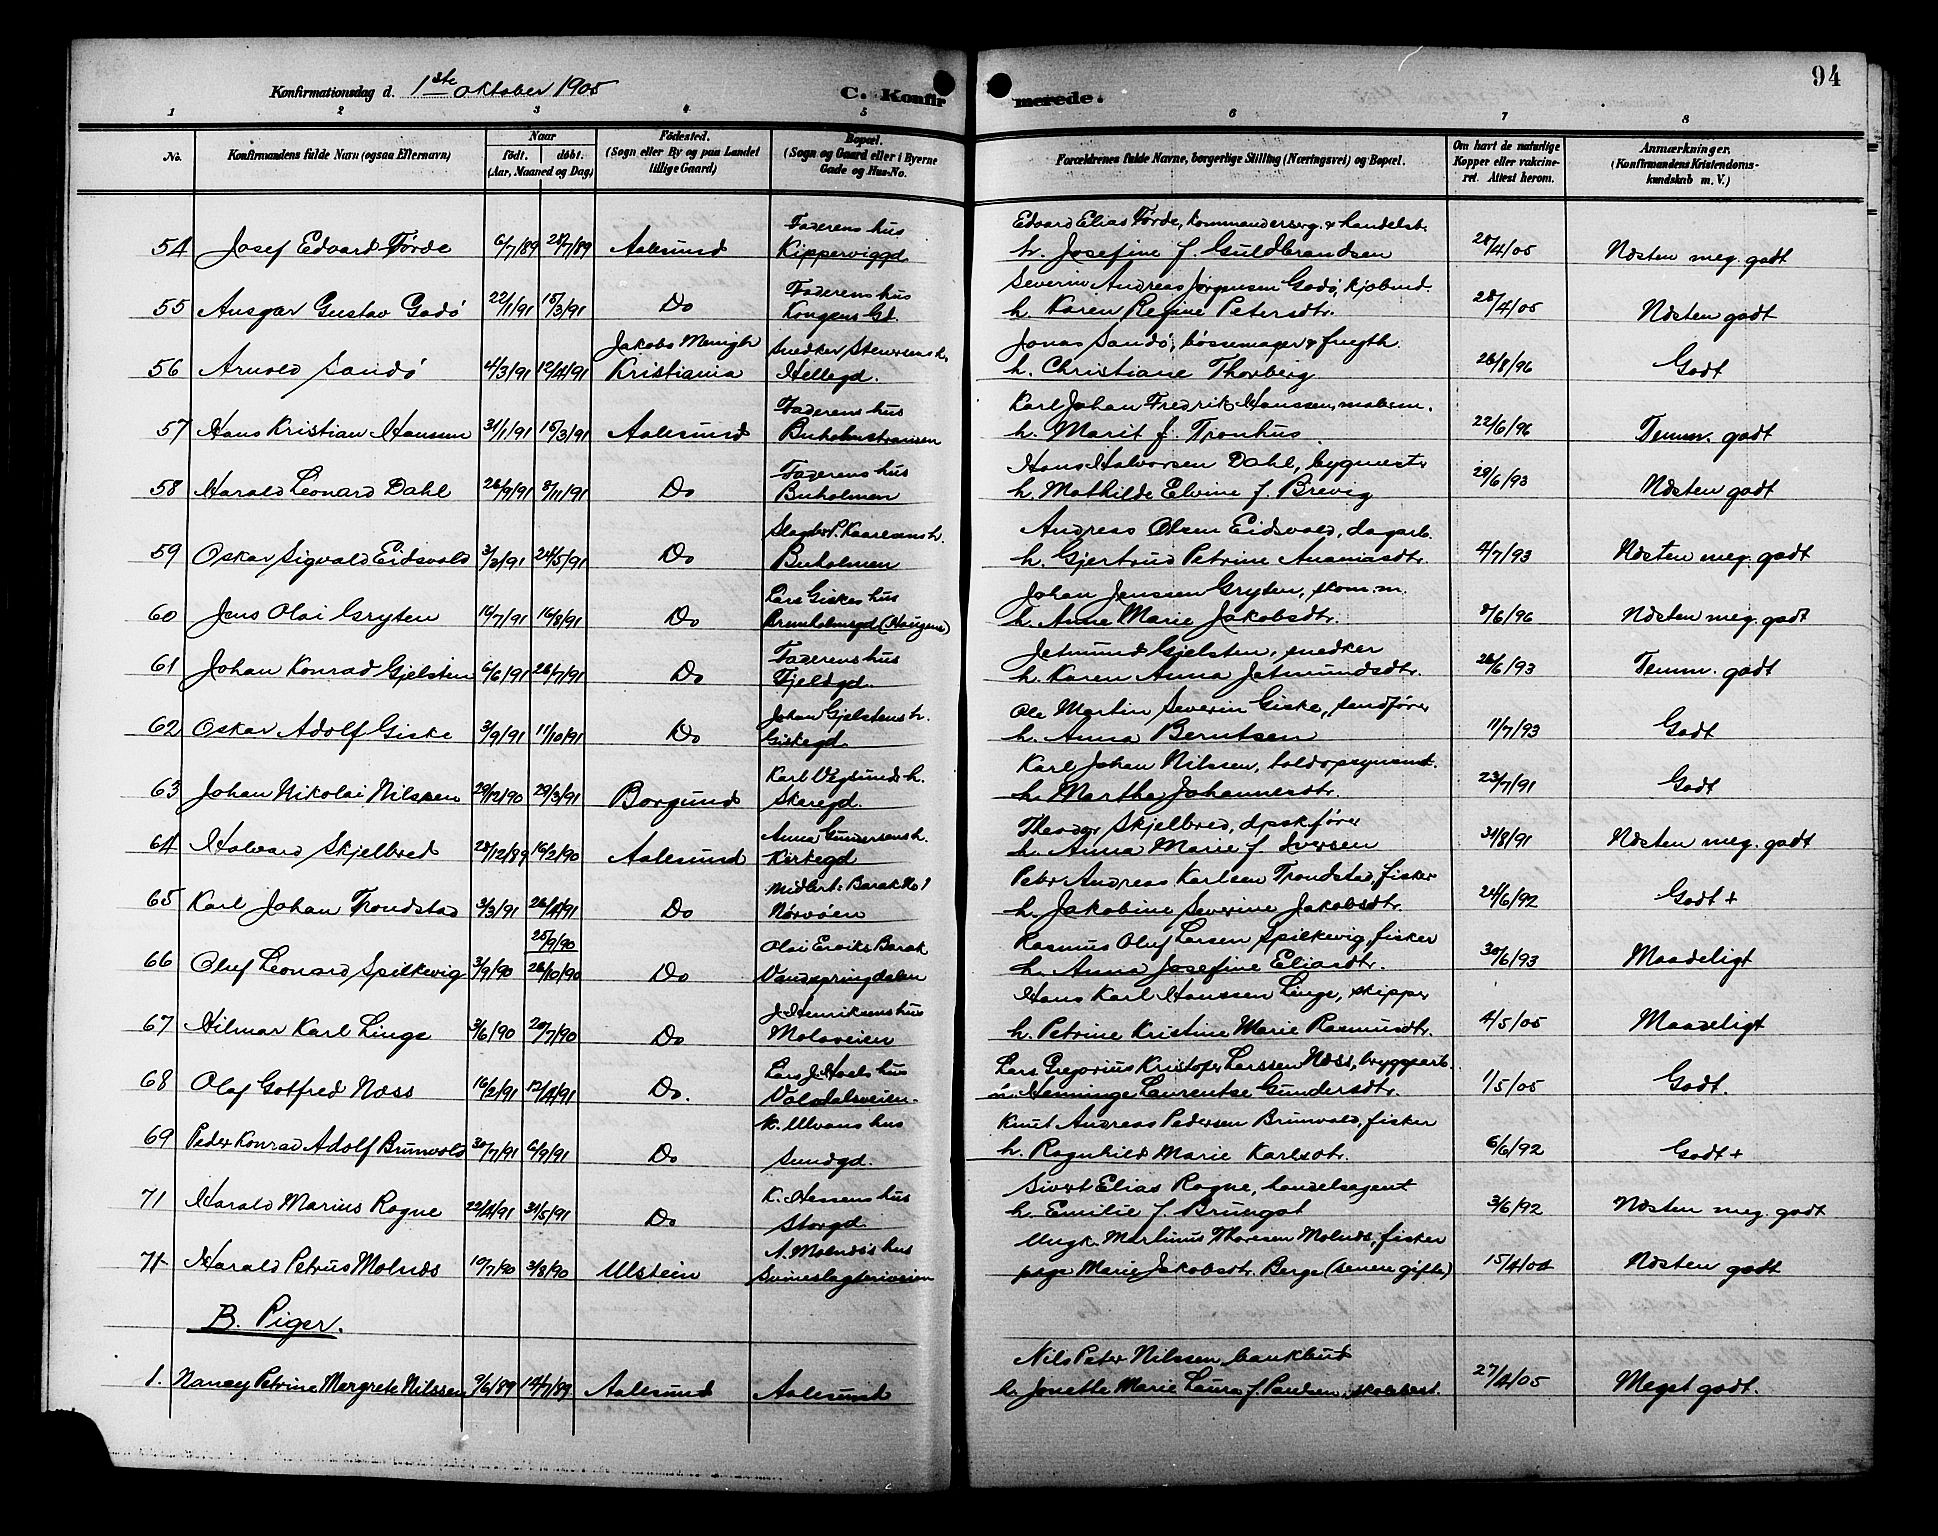 94
Konfirmationsdag d. 1ste oktober 1905
C. Konfirmerede.
1 2 3 4 5 6 7 8
No.
Konfirmandens fulde Navn (ogsaa Efternavn)
Naar
födt. döbt.
(Aar, Maaned og Dag)
Födested.
(Sogn eller By og paa Landet
tillige Gaard)
Bopæl.
(Sogn og Gaard eller i Byerne
Gade og Hus-No.
Forældrenes fulde Navne, borgerlige Stilling (Næringsvei) og Bopæl.
Om havt de naturlige
Kopper eller vaccine-
ret. Attest herom.
Anmærkninger.
(Konfirmandens Kristendoms-
kundskab m. V.)
Faderens hus Edvard Elias Förde, & handelsb.
54 Josef Edvard Förde 6/7/89 28/7/89 Aalesund Kipperviggd. h. Josefine f. Guldbrandsen 28/4/05 Næsten meg. godt
Faderens hus Severin Andreas Jörgensen Godö, kjöbmd.
55 Ansgar Gustav Godö 22/1/91 15/3/91 Do Kongens Gd. h. Karen Regine Petersdtr. 28/4/05 Næsten godt
Jakobs Menigh Snedker h. Jonas Sandö, bössemager &
56 Arnold Sandö 4/3/91 12/4/91 Kristiania Hellegd. h. Christiane Thorberg 26/8/96 Godt
Faderens hus Karl Johan Fredrik Hanssen, malerm.
57 Hans Kristian Hanssen 31/1/91 15/3/91 Aalesund Buholmstranden h. Marit f. Tronhus 22/6/96 Temm. godt
Faderens hus Hans Halvorsen Dahl, bygmestr
58 Harald Leonard Dahl 26/9/91 8/11/91 Do Buholmen h. Mathilde Elvine f. Brevig 29/6/93 Næsten godt
P. Kaaresens h. Andreas Olsen Eidsvold, dagarb.
59 Oskar Sigvald Eidsvold 3/2/91 24/5/91 Do Buholmen h. Gjertrud Petrine Ananiasdtr. 4/7/93 Næsten meg. godt
Lars Giskes hus Johan Jenssen Gryten, skom.m.
60 Jens Olai Gryten 16/7/91 16/8/91 Do Brunholmgd (Haugen) h. Anne Marie Jakobsdtr. 8/6/96 Næsten meg. godt
Faderens hus Jetmund Gjelsten, snedker
61 Johan Konrad Gjelsten 6/6/91 26/7/91 Do Fjeldgd. h. Karen Anna Jetmundsdtr. 26/6/93 Temm. godt
Johan Gjelstens h. Ole Martin Severin Giske, sandförer
62 Oskar Adolf Giske 3/9/91 11/10/91 Do Giskegd. h. Anna Berntsen 11/7/93 Godt
Karl Vegsunds h. Karl Johan Nilssen, toldopsynsmd.
63 Johan Nikolai Nilssen 29/12/90 29/3/91 Borgund Skaregd. h. Marthe Johannesdtr. 23/7/91 Godt
Anna Gundersens h. Theodor Skjelbred, dpskförer
64 Halvard Skjelbred 28/12/89 16/2/90 Aalesund Kirkegd h. Anna Marie f. Iversen 31/8/91 Næsten meg. godt
Midlert. Barak No 1 Peter Andreas Karlsen Trondstad, fisker
65 Karl Johan Trondstad 3/3/91 26/4/91 Do Nörvöen h. Jakobine Severine Jakobsdtr. 24/6/92 Godt +
25/9/90 Olai Erviks Barak Rasmus Oluf Larsen Spilkevig, fisker
66 Oluf Leonard Spilkevig 3/9/90 26/10/90 Do Vandspringdalen h. Anna Josefine Eliasdtr. 30/6/93 Maadeligt
J. Henriksens hus Hans Karl Hanssen Linge, skipper
67 Hilmar Karl Linge 3/6/90 20/7/90 Do Moloveien h. Petrine Kristine Marie Rasmusdtr. 4/5/05 Maadeligt
Lars J. Hoels hus Lars Gregorius Kristofer Larssen Næss, bryggearb.
68 Olaf Gotfred Næss 16/2/91 12/4/91 Do. Volsdalsveien. Henninge Laurentse Gundersdtr. 1/5/05 Godt.
K. Ulvans hus Knut Andreas Pedersen Brunvold, fisker
69 Peder Konrad Adolf Brunvold 30/7/91 6/9/91 Do Sundgd. h. Ragnhild Marie Karlsdtr. 6/6/92 Godt +
K. Hessens hus Sivert Elias Rogne, handelsagent
71 Harald Marius Rogne 22/4/91 31/5/91 Do Storgd. h. Emilie f. Brungot 3/6/92 Næsten meg. godt
A. Molnæs's hus Ungk. Martinus Thoresen Molnæs, fisker
71 Harald Petrus Molnæs 10/7/90 3/8/90 Ulstein Svineslagteriveien pige Marie Jakobsdtr. Berge (senere gifte) 15/4/04 Næsten godt
B. Piger.
Nils Peter Nilssen, bankbud
1. Nancy Petrine Margrete Nilssen 9/6/89 14/7/89 Aalesund Aalesund h. Jonette Marie Laura f. Paulsen, 27/4/05 Meget godt.